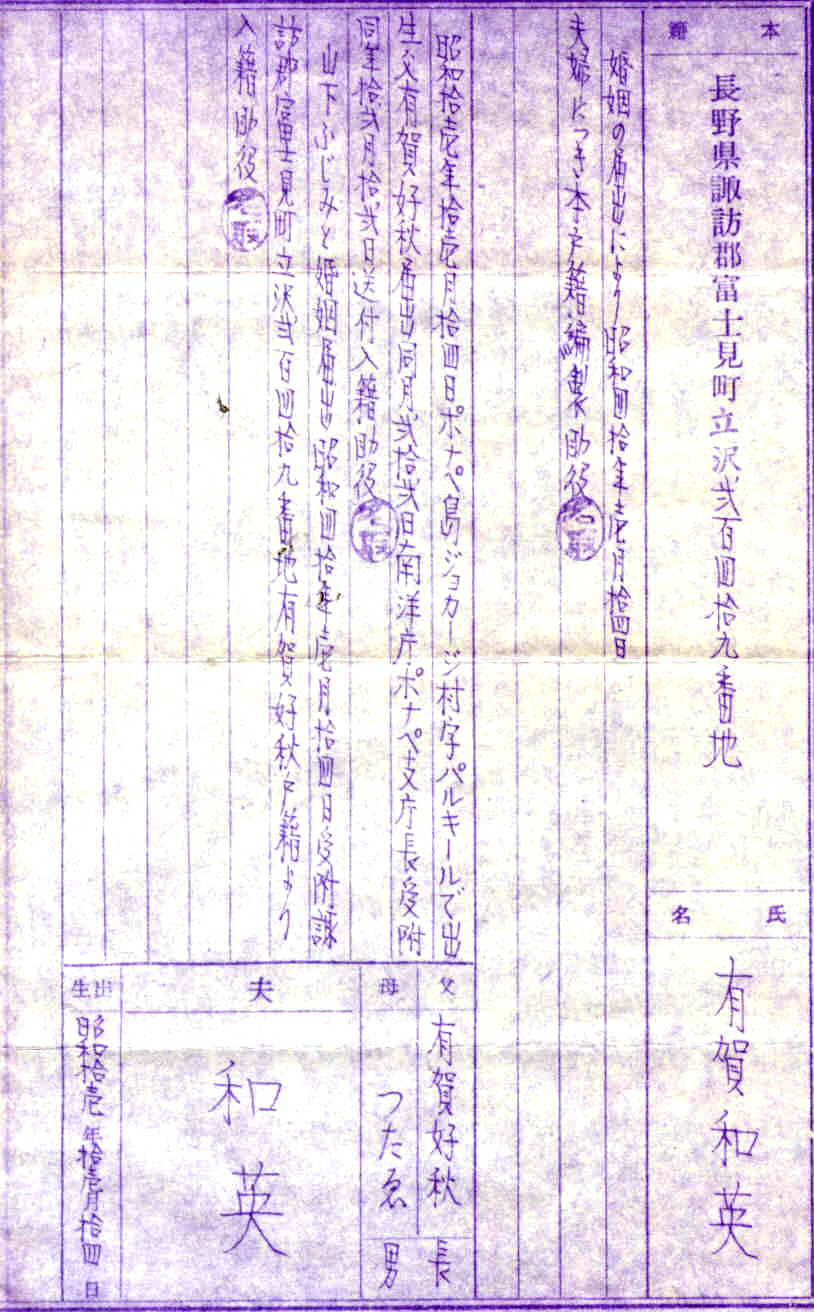 本籍
長野県諏訪郡富士見町立沢弐百四拾九番地
氏名
有賀和英
婚姻の届出により昭和四拾年壱月拾四日
夫婦につき本戸籍編製助役
昭和拾壱年拾壱月拾四日ポナペ島ジョカージ村字パルキールで出
生父有賀好秋届出同月弐拾弐日南洋庁ポナペ支庁長受附
同年拾弐月拾弐日送付入籍助役
山下ふじみと婚姻届出昭和四拾年壱月拾四日受附諏
訪郡富士見町立沢弐百四拾九番地有賀好秋戸籍より
入籍助役
父
有賀好秋
母
つたゑ
長
男
夫
和英
出生
昭和拾壱年拾壱月拾四日